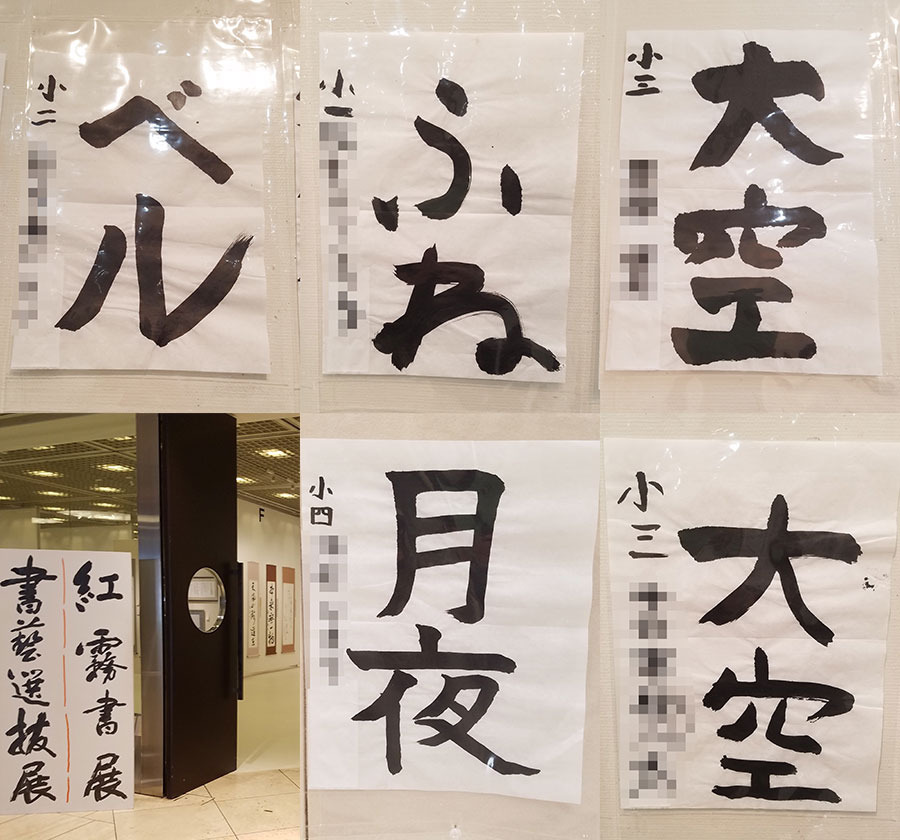 小二
ベル
小一
ふね
小三
大空
紅霧書展
書藝選抜展
F
小四
月夜
小三
大空